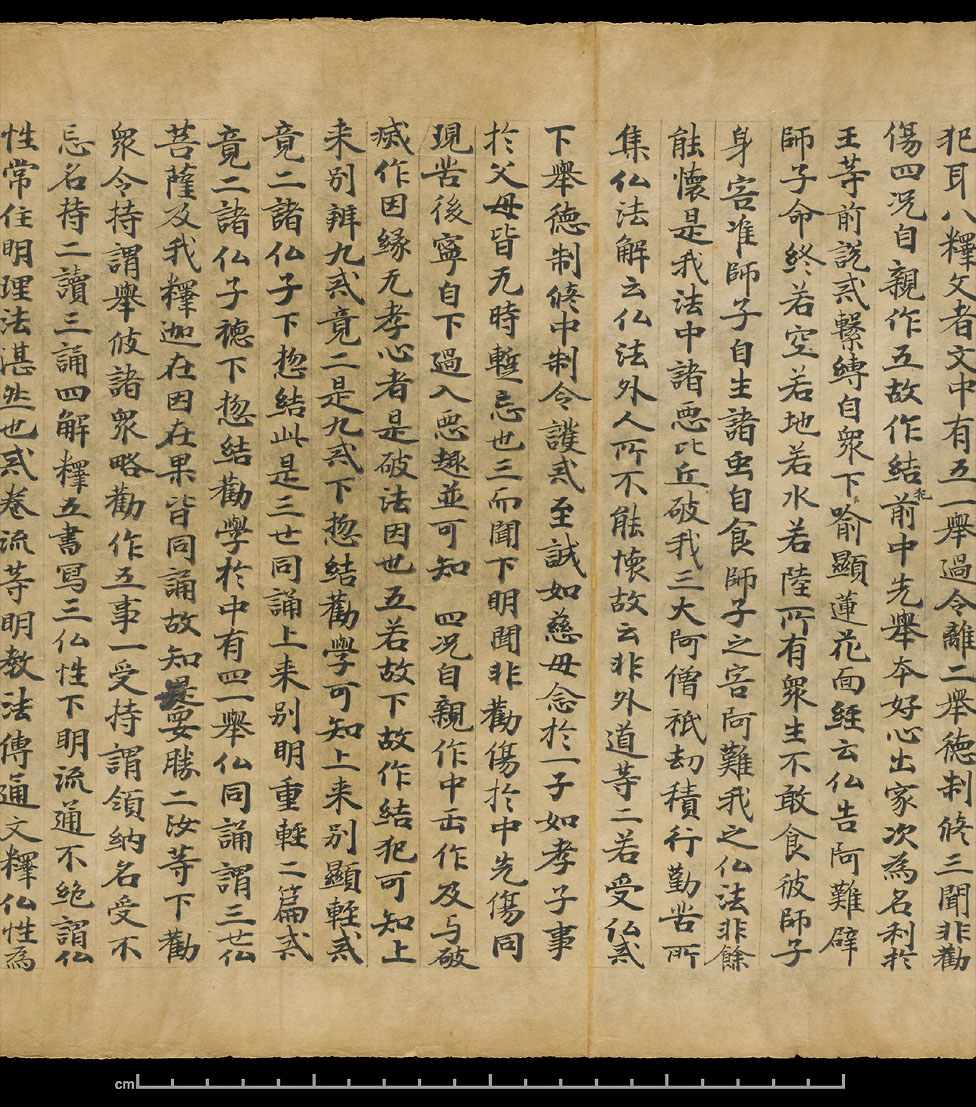 犯耳八釋文者文中有五一舉過令離二舉德制修三聞非勸
傷四况自親作五故作結犯前中先舉本好心出家次為名利於
王等前説戒繫縛自衆下喻顯蓮花面經云仏告阿難辟
師子命終若空若地若水若陸所有衆生不敢食彼師子
身宍准師子自生諸虫自食師子之宍阿難我之仏法非餘
能懷是我法中諸悪比丘破我三大阿僧祇刧積行勤苦所
集仏法解云仏法外人所不能懷故云非外道等二若受仏戒
下舉德制修中制令護戒至誠如慈母念於一子如孝子事
於父母皆无時蹔忘也三而聞下明聞非勸傷於中先傷同
現苦後寧自下過入悪趣並可知 四况自親作中缶作及与破
滅作因緣无孝心者是破法因也五若故下故作結犯可知上
来別辨九戒竟二是九戒下惣結勸學可知上来別顯輕戒
竟二諸仏子下惣結此是三世同誦上来別明重輕二篇戒
竟二諸仏子德下惣結勸學於中有四一舉仏同誦謂三世仏
菩薩及我釋迦在因在果皆同誦故知是要勝二汝等下勸
衆令持謂舉彼諸衆略勸作五事一受持謂領納名受不
忘名持二讀三誦四解釋五書寫三仏性下明流通不絶謂仏
性常住明理法湛然也戒卷流等明教法傳通文釋仏性為